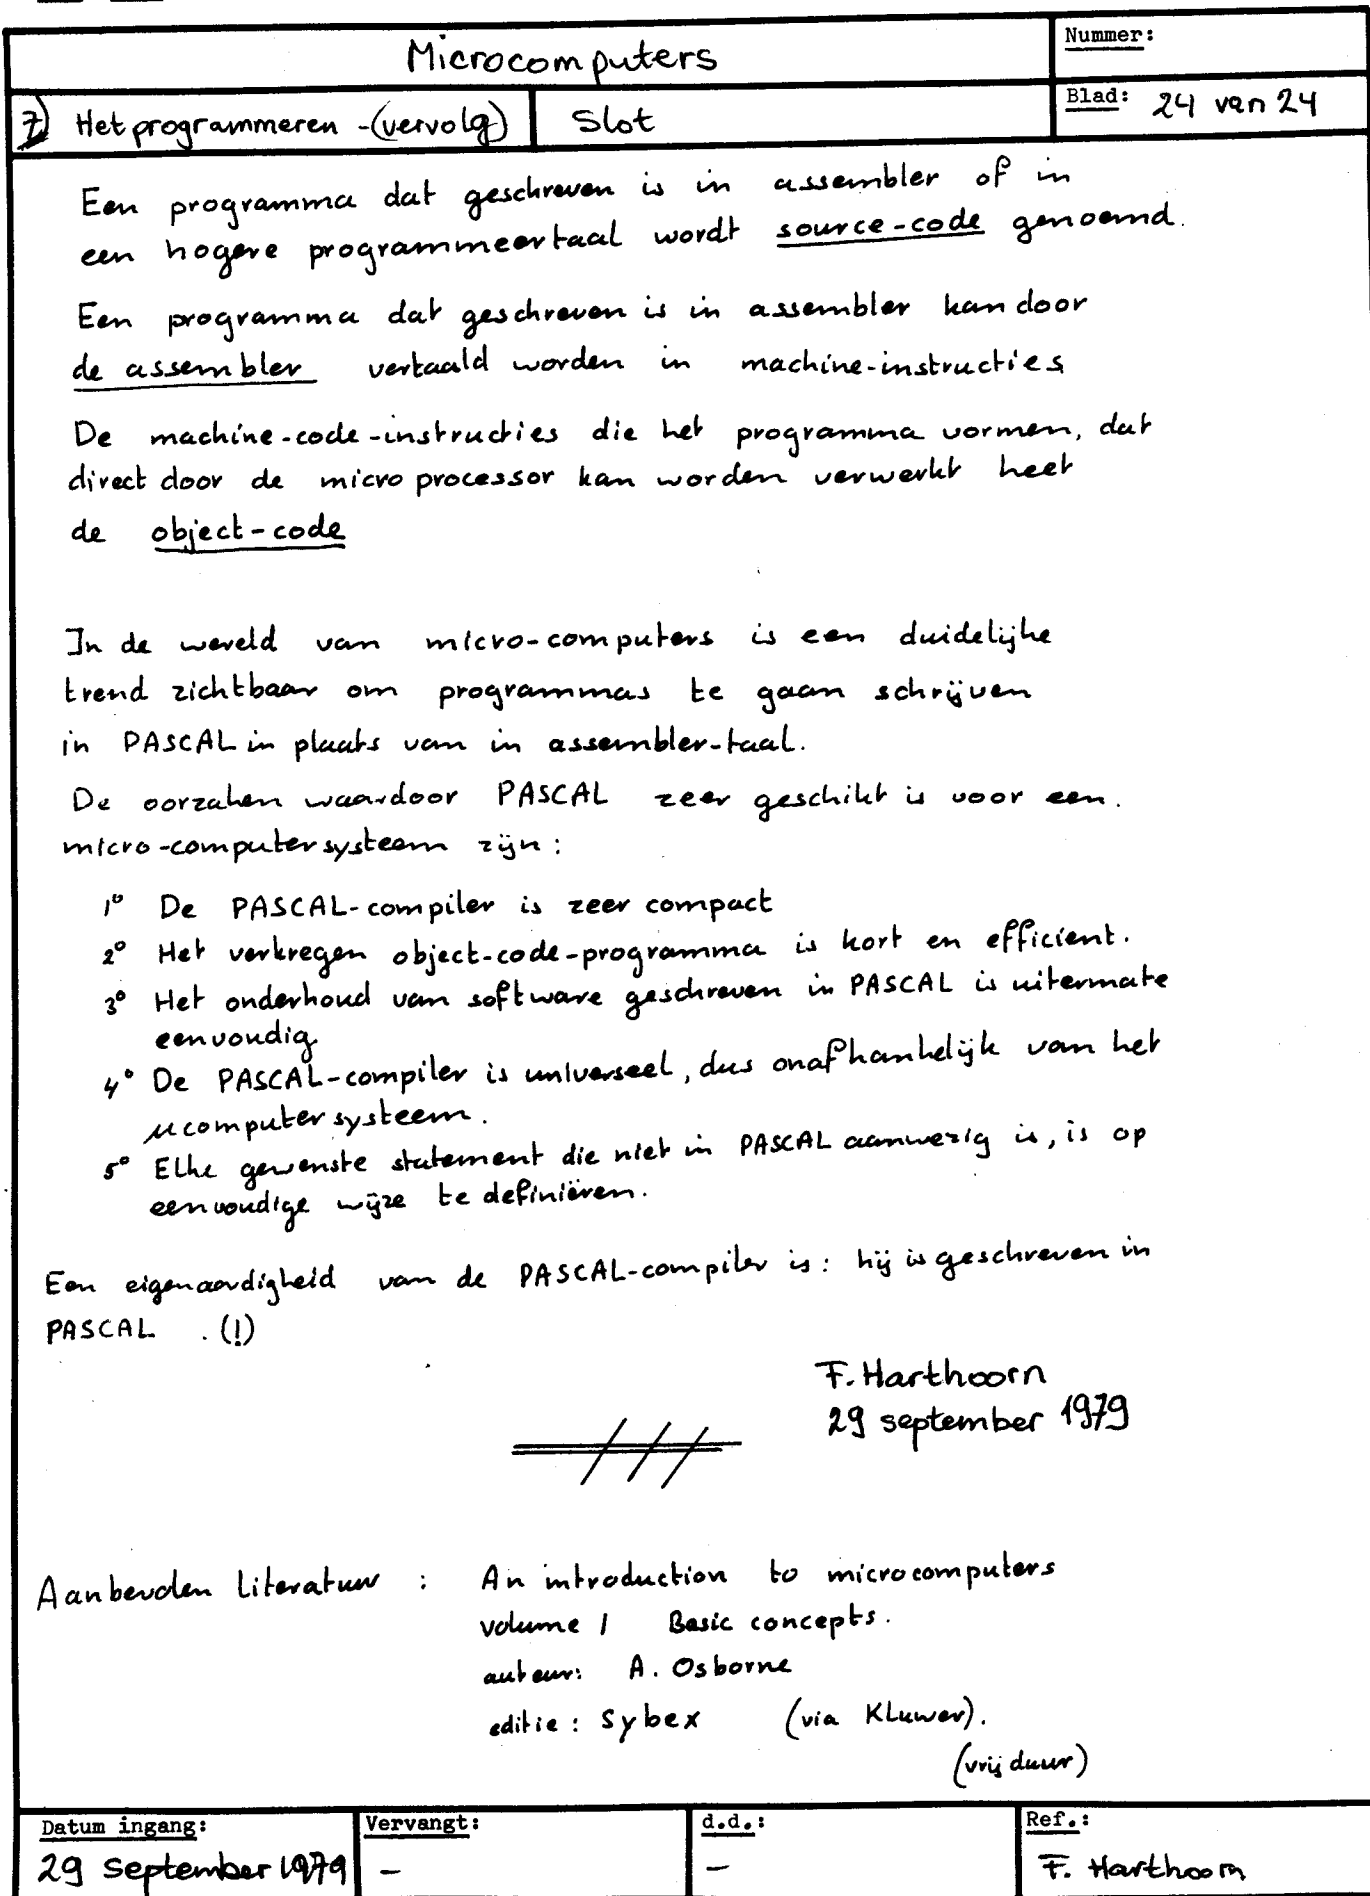 Microcomputers
Nummer:
7) Het programmeren -(vervolg)
Slot
Blad: 24 van 24
Een programma dat geschreven is in assembler of in
een hogere programmeertaal wordt source-code genoemd.
Een programma dat geschreven is in assembler kan door
de assembler vertaald worden in machine-instructies
De machine-code-instructies die het programma vormen, dat
direct door de micro processor kan worden verwerkt heet
de object-code
In de wereld van micro-computers is een duidelijke
trend zichtbaar om programmas te gaan schrijven
in PASCAL in plaats van in assembler-taal.
De oorzaken waardoor PASCAL zeer geschikt is voor een
micro-computersysteem zijn:
1° De PASCAL-compiler is zeer compact
2° Het verkregen object-code-programma is kort en efficient.
3° Het onderhoud van software geschreven in PASCAL is uitermate
eenvoudig
4° De PASCAL-compiler is universeel, dus onafhankelijk van het
µcomputersysteem.
5° Elke gewenste statement die niet in PASCAL aanwezig is, is op
eenvoudige wijze te definiëren.
Een eigenaardigheid van de PASCAL-compiler is: hij is geschreven in
PASCAL . (!)
F. Harthoorn
29 september 1979
Aanbevolen literatuur : An introduction to microcomputers
volume 1 Basic concepts.
auteur: A. Osborne
editie: Sybex (via Kluwer).
(vrij duur)
Datum ingang:
29 september 1979
Vervangt:
–
d.d.:
–
Ref.:
F. Harthoorn